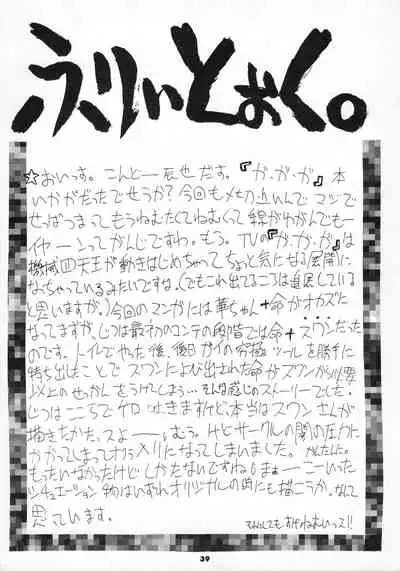 えりぃとぉく。
☆おいっす。こんとー辰也だす。『ガ・ガ・ガ』本
いかがだったでせうか？今回もメ切り近いんで マジで
せっぱつまって もうねむたくてねむくて 線がわかんでもー
イヤーンってかんじですわ。もう。TVの『ガ・ガ・ガ』は
機械四天王が動きはじめちゃって ちょっと気になる展開に
なっちゃているみたいですな。(でもこれ出てるころは進展している
と思いますが。)今回のマンガには華ちゃん+命がオカズに
なってますが、じつは最初のコンテの段階では命+スワンだった
のです。トイレでやった後、後日ガイの究極ツールを勝手に
持ち出したことでスワンによび出された命がスワンから必要
以上のせっかんをうけてしまう…そんな感じのストーリーでした。
じつはここらでゲロ吐きますけど、本当はスワンさんが
描きたかた。スよ――。しむう。けどサークルの闇の圧力に
かかってしまってオクラ入りになってしまいました。かんたんに。
もったいなかったけどしかたないですね。まぁーこーいった
シチュエーション物はいずれオリジナルの時にも描こうか、なんて
思ています。
39